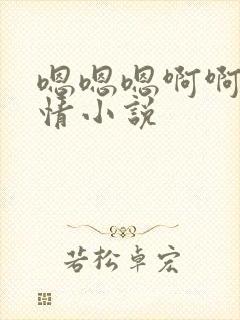 嗯嗯嗯啊啊
情小説
若松卓宏